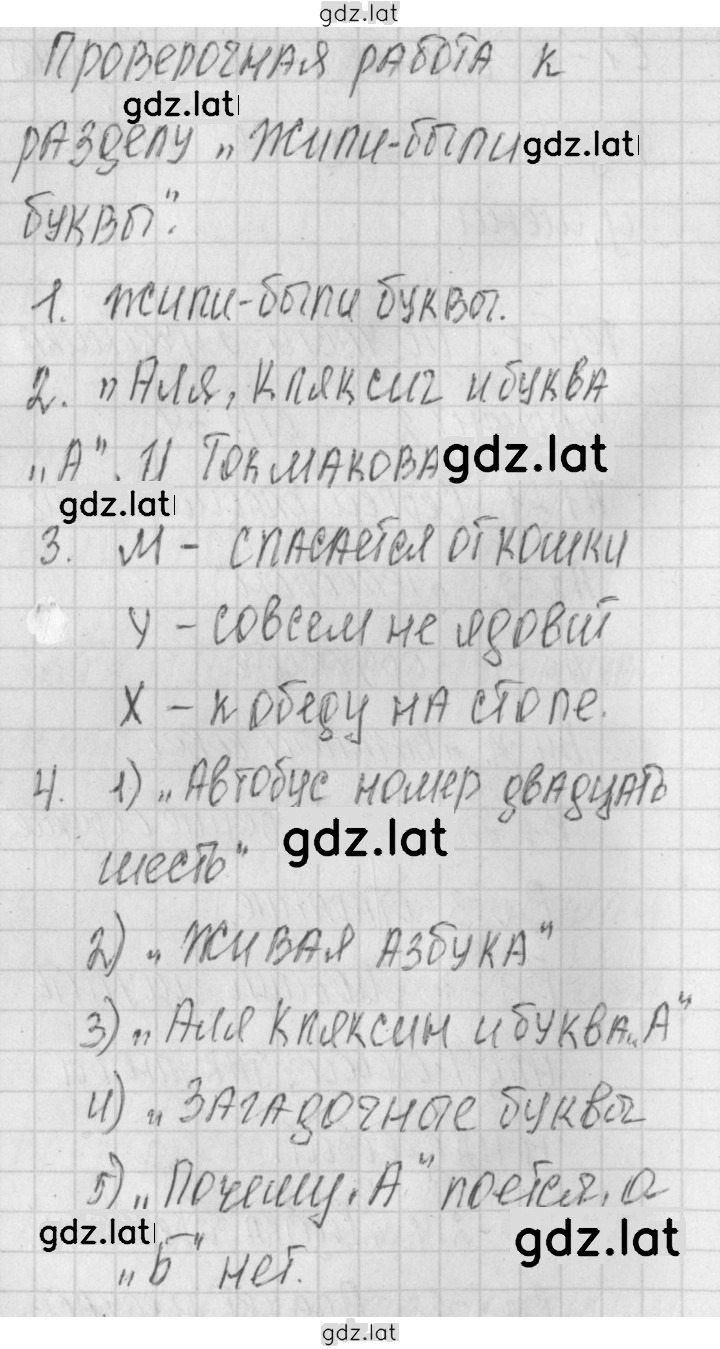 gdz.lat
Проверочная работа к
gdz.lat
разделу „Жили-были
gdz.lat
буквы".
1. Жили-были буквы.
2. „Аля, Кляксич и буква
„А". И Токмакова
gdz.lat
gdz.lat
3. М - спасается от кошки
У - совсем не ядовит
Х - к обеду на столе.
4. 1) „Автобус номер двадцать
gdz.lat
шесть"
2) „Живая азбука"
3) „Аля Кляксин и буква „А"
4) „Загадочные буквы
5) „Почему „А" поется, а
gdz.lat
gdz.lat
„Б" нет.
gdz.lat